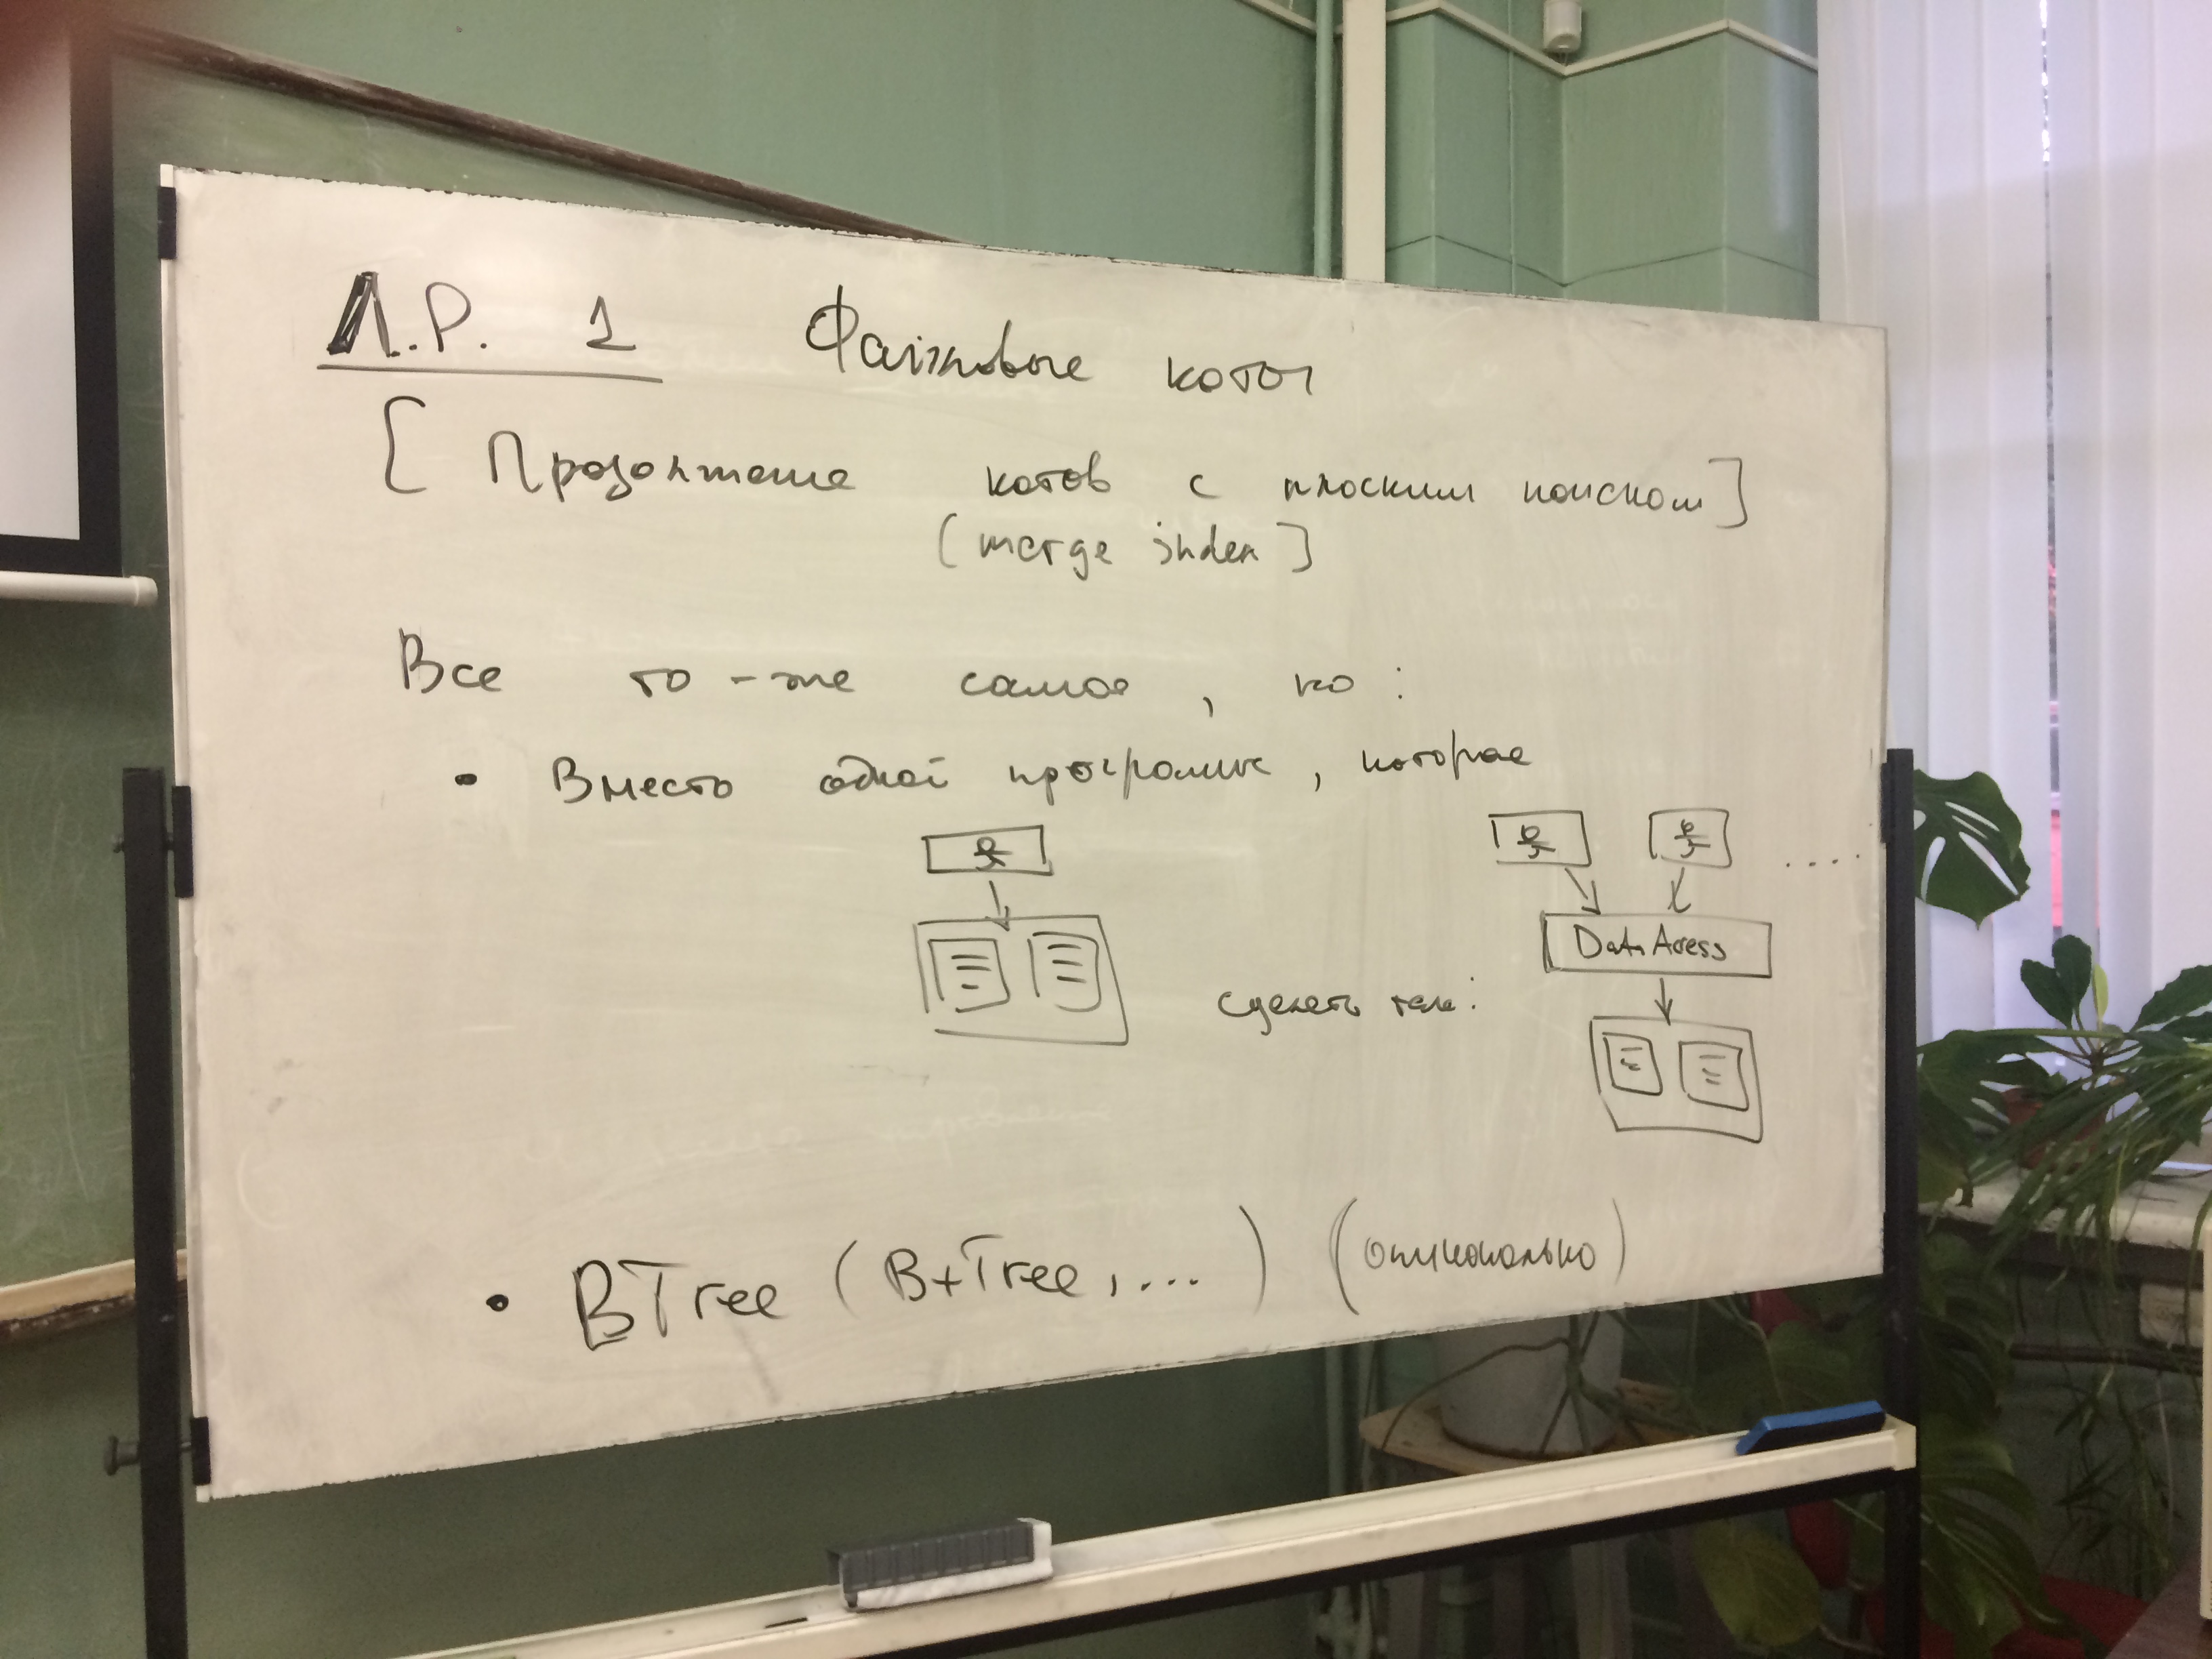 Л.Р. 1 Файловые коты
[ Продолжение котов с плоским поиском ]
[ merge index ]
Все то-же самое, но:
• Вместо одной программы, которая
DataAcess
сделать так:
• BTree (B+Tree, ...) (опционально)